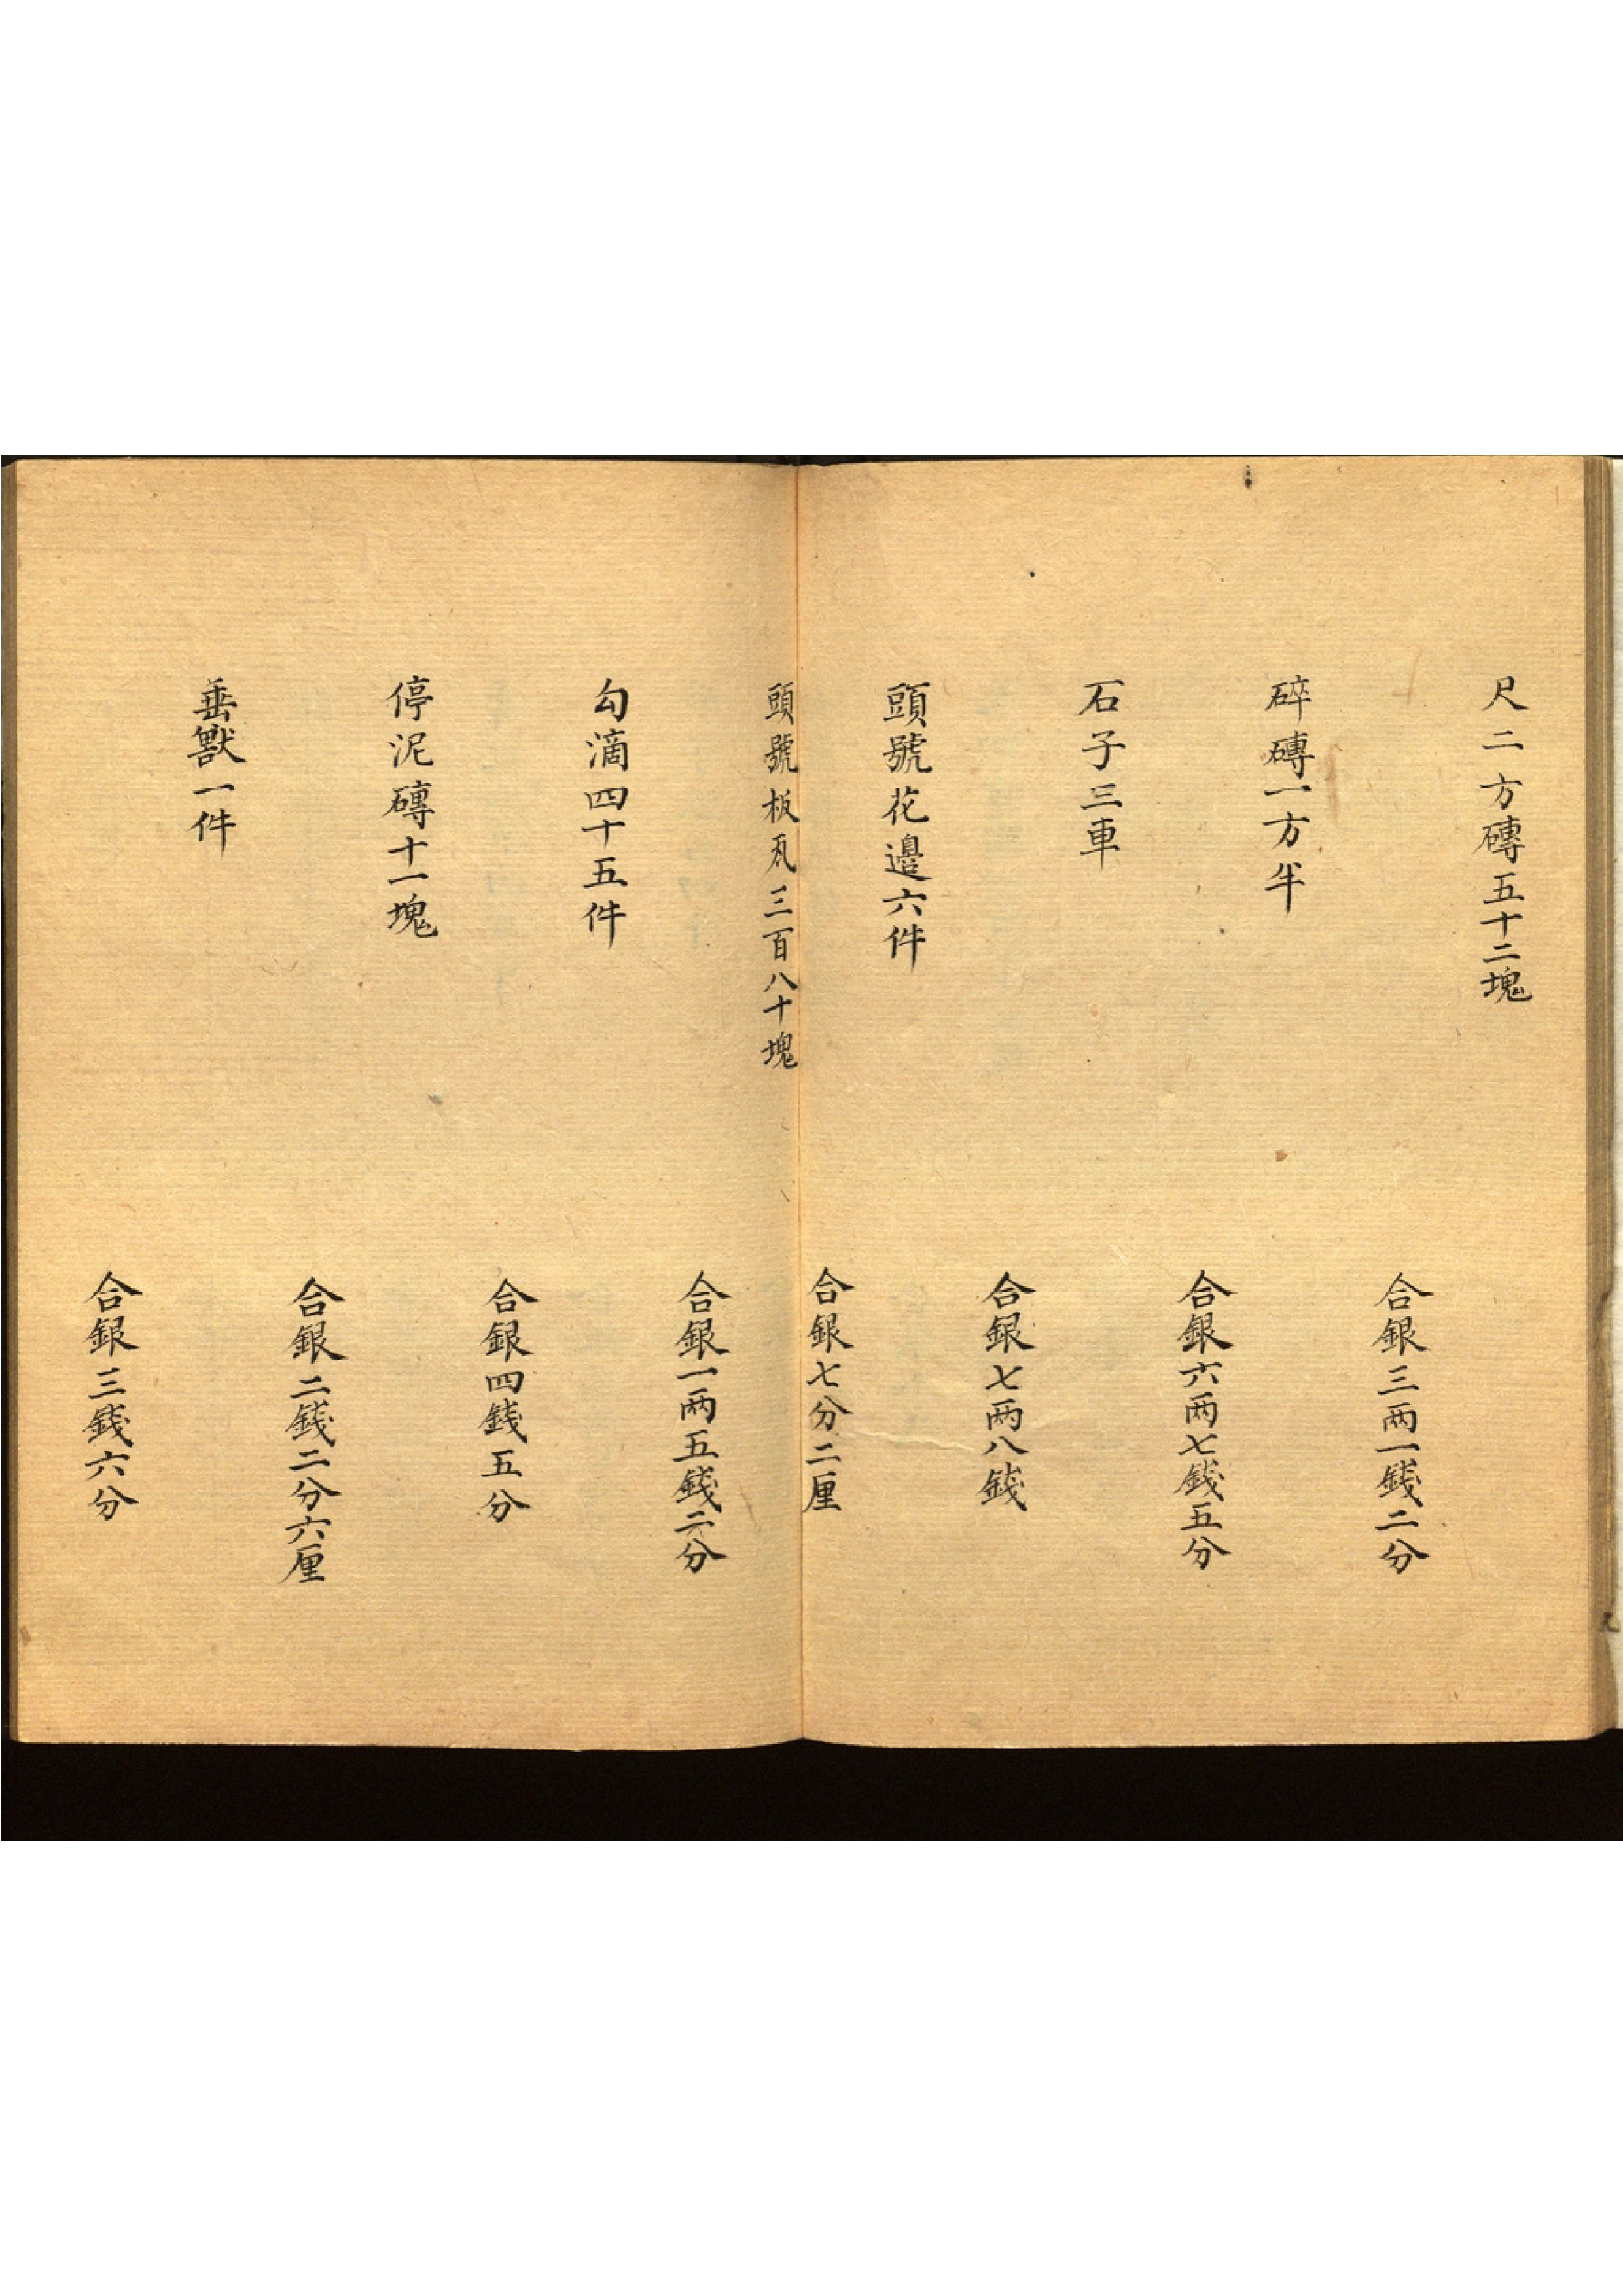 尺二方磚五十二塊
合銀三两一錢二分
碎磚一方半
合銀六两七錢五分
石子三車
合銀七两八錢
頭號花邊六件
合銀七分二厘
頭號板瓦三百八十塊
合銀一两五錢二分
勾滴四十五件
合銀四錢五分
停泥磚十一塊
合銀二錢二分六厘
垂獸一件
合銀三錢六分